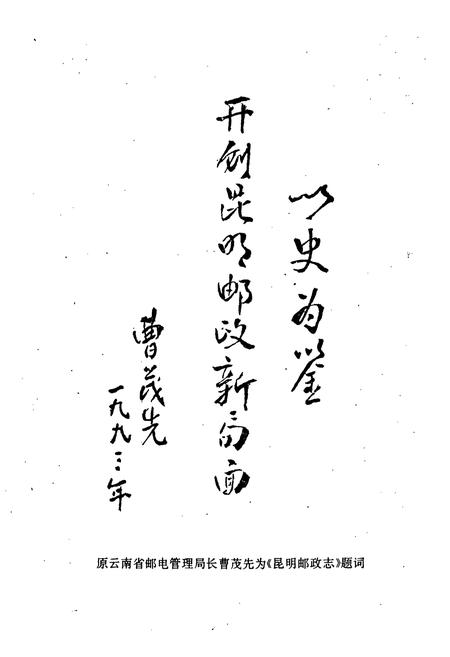 以史为鉴
开创昆明邮政新局面
曹茂先
一九九三年
原云南省邮电管理局长曹茂先为《昆明邮政志》题词